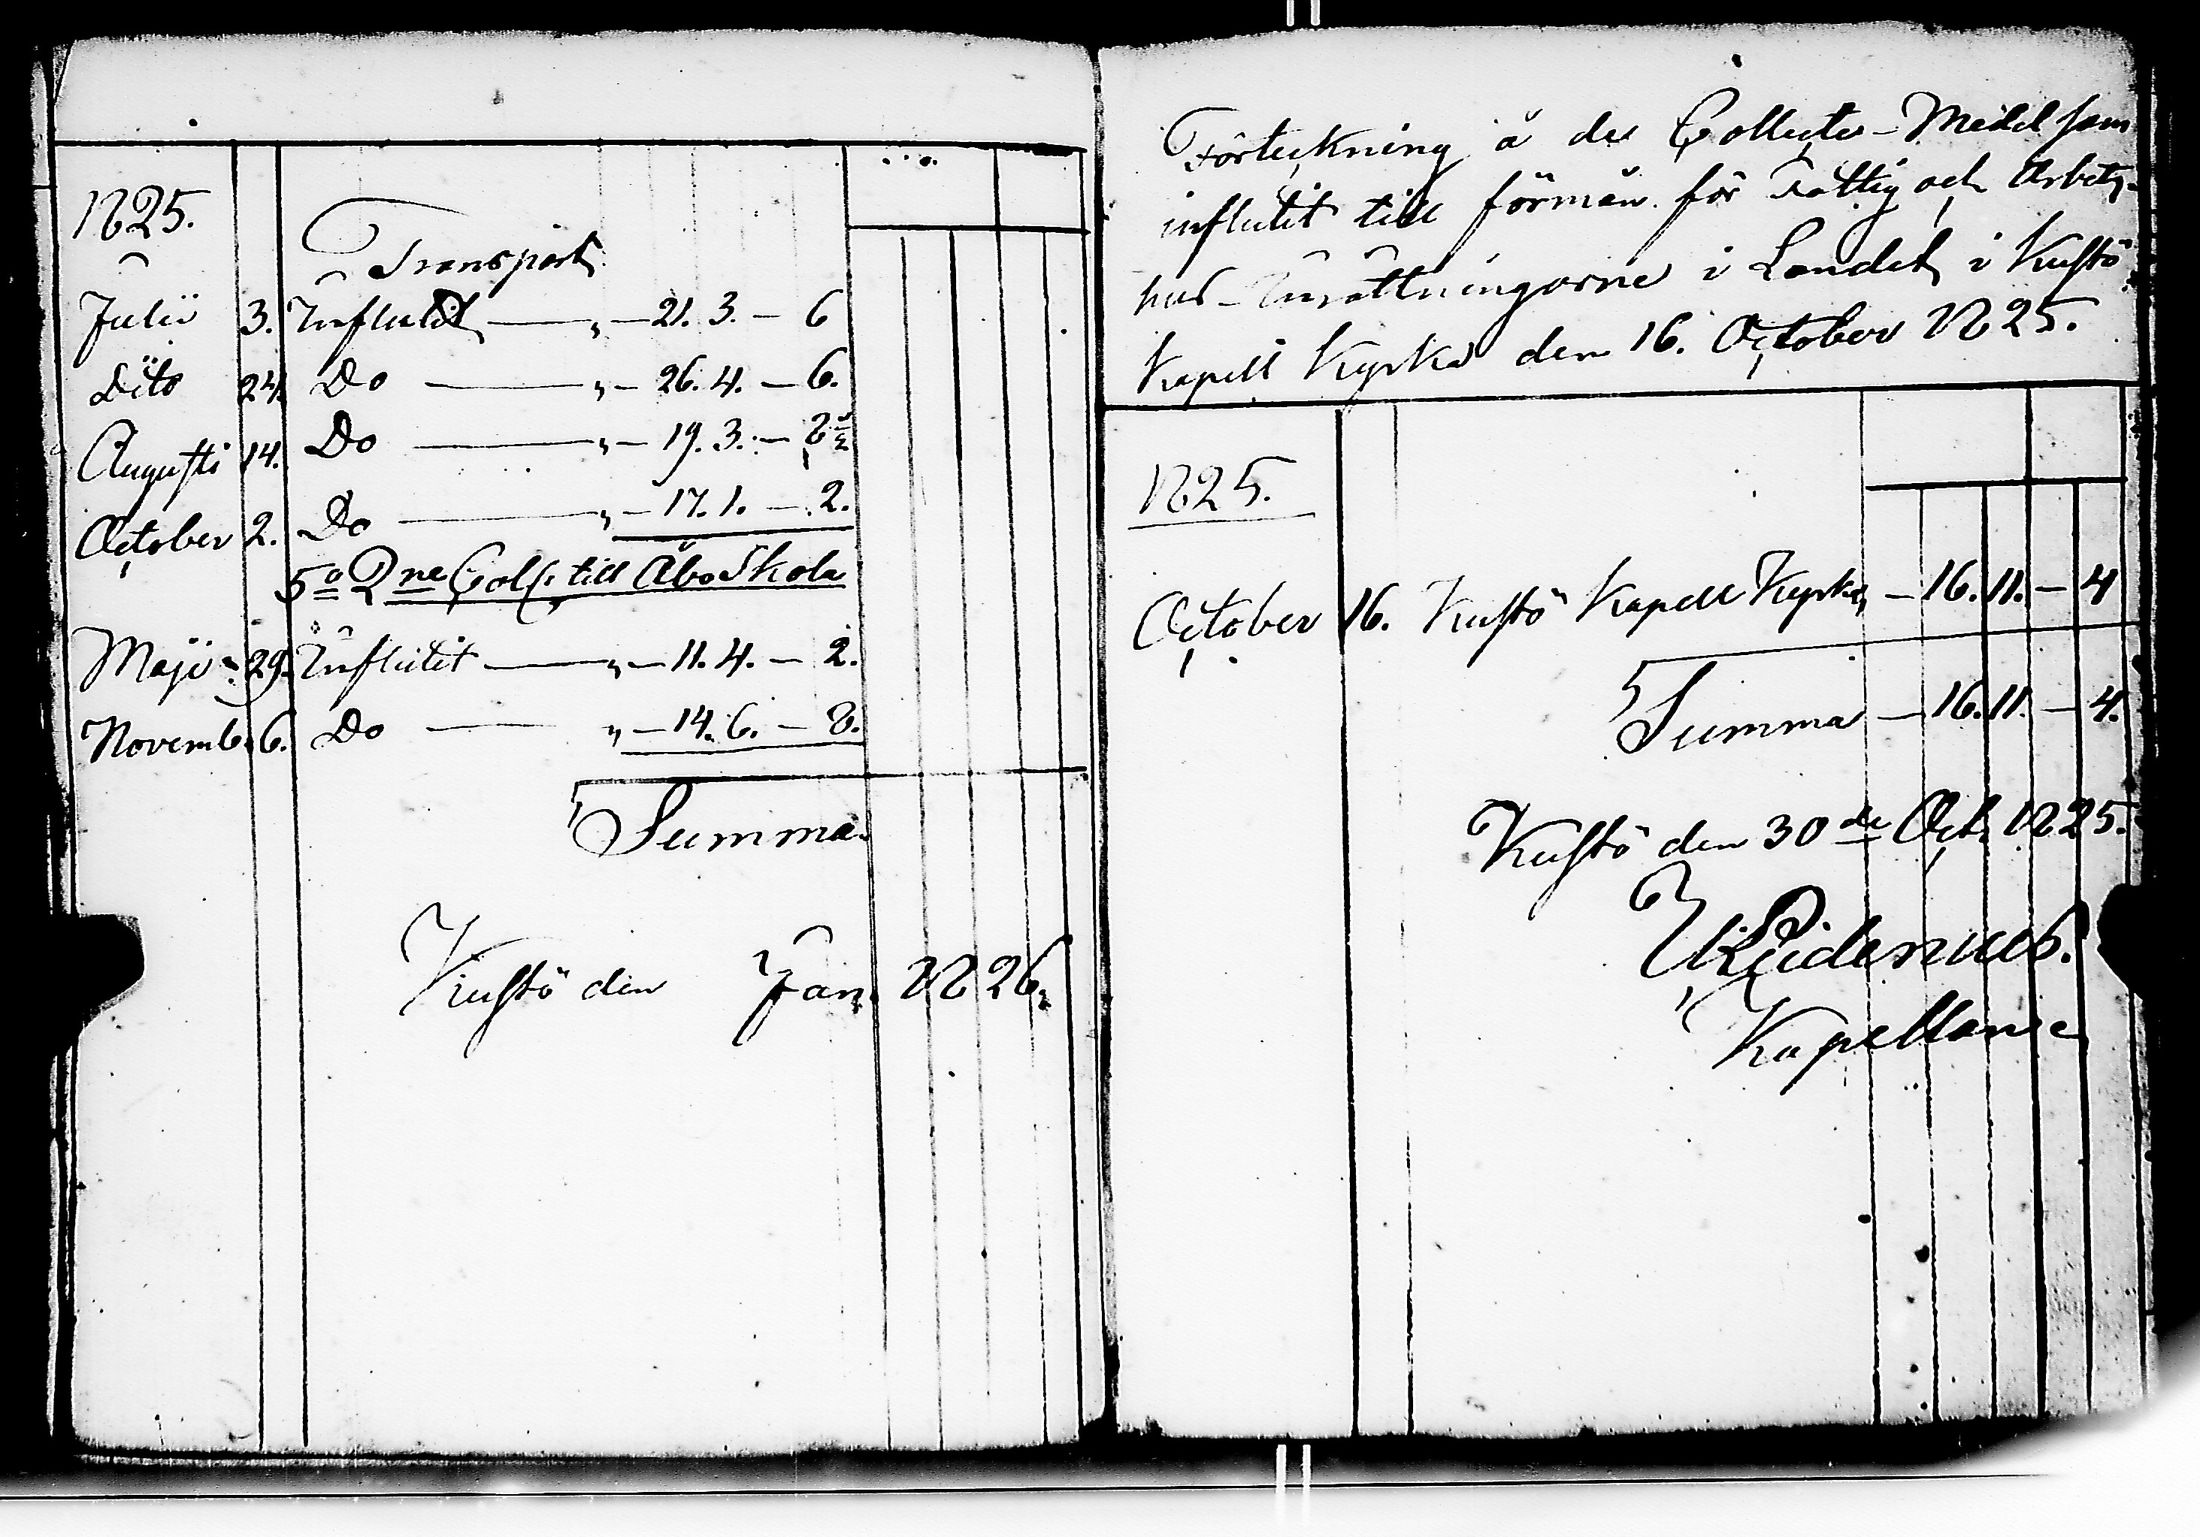 1825.
Transport
Julii 3. Influtit — " — 21. 3. — 6
Dito 24. Do — " — 26. 4. — 6.
Augusti 14. Do — " — 19. 3. — 8
October 2. Do — " — 17. 1. — 2.
5o 2ne Coll. till Åbo Skola
Maji 29. Influtit — " — 11. 4. — 2.
Novemb. 6. Do — " — 14. 6. — 8.
Summa
Kustö den Jan. 1826.
Förteckning å de Collecte-Medel som
influtit till förmån för Fattig och Arbets-
hus-Inrättningarne i Landet, i Kustö
Kapell Kyrka den 16. October 1825.
1825.
October 16. Kustö Kapell Kyrka — 16. 11. — 4
Summa — 16. 11. — 4.
Kustö den 30de Oct. 1825.
Kapellan